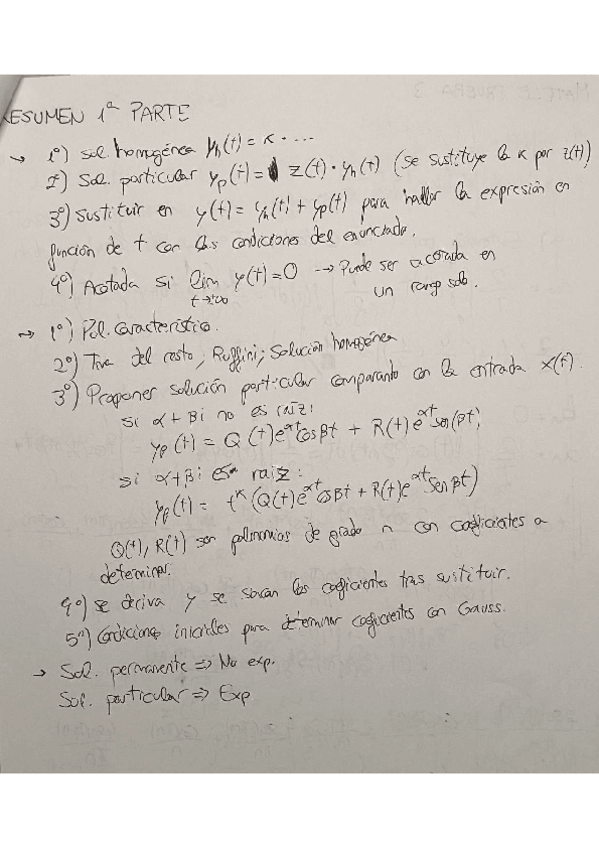 RESUMEN 1ª PARTE
→ 1º) Sol. homogénea yh(t) = K · ...
2º) Sol. particular yp(t) = z(t) · yh(t) (se sustituye la K por z(t))
3º) Sustituir en y(t) = yh(t) + yp(t) para hallar la expresión en
función de t con las condiciones del enunciado.
4º) Acotada si lim t→+∞ y(t) = 0 → Puede ser acotada en
un rango solo.
→ 1º) Pol. Característico.
2º) Tma del resto, Ruffini; Solución homogénea
3º) Proponer solución particular comparando con la entrada x(t).
si α+βi no es raiz:
yp(t) = Q(t)e^αt cosβt + R(t)e^αt sen(βt)
si α+βi es raiz:
yp(t) = t^K (Q(t)e^αt cosβt + R(t)e^αt senβt)
Q(t), R(t) son polinomios de grado n con coeficientes a
determinar.
4º) se deriva y se sacan los coeficientes tras sustituir.
5º) Condiciones iniciales para determinar coeficientes con Gauss.
→ Sol. permanente => No exp.
Sol. particular => Exp